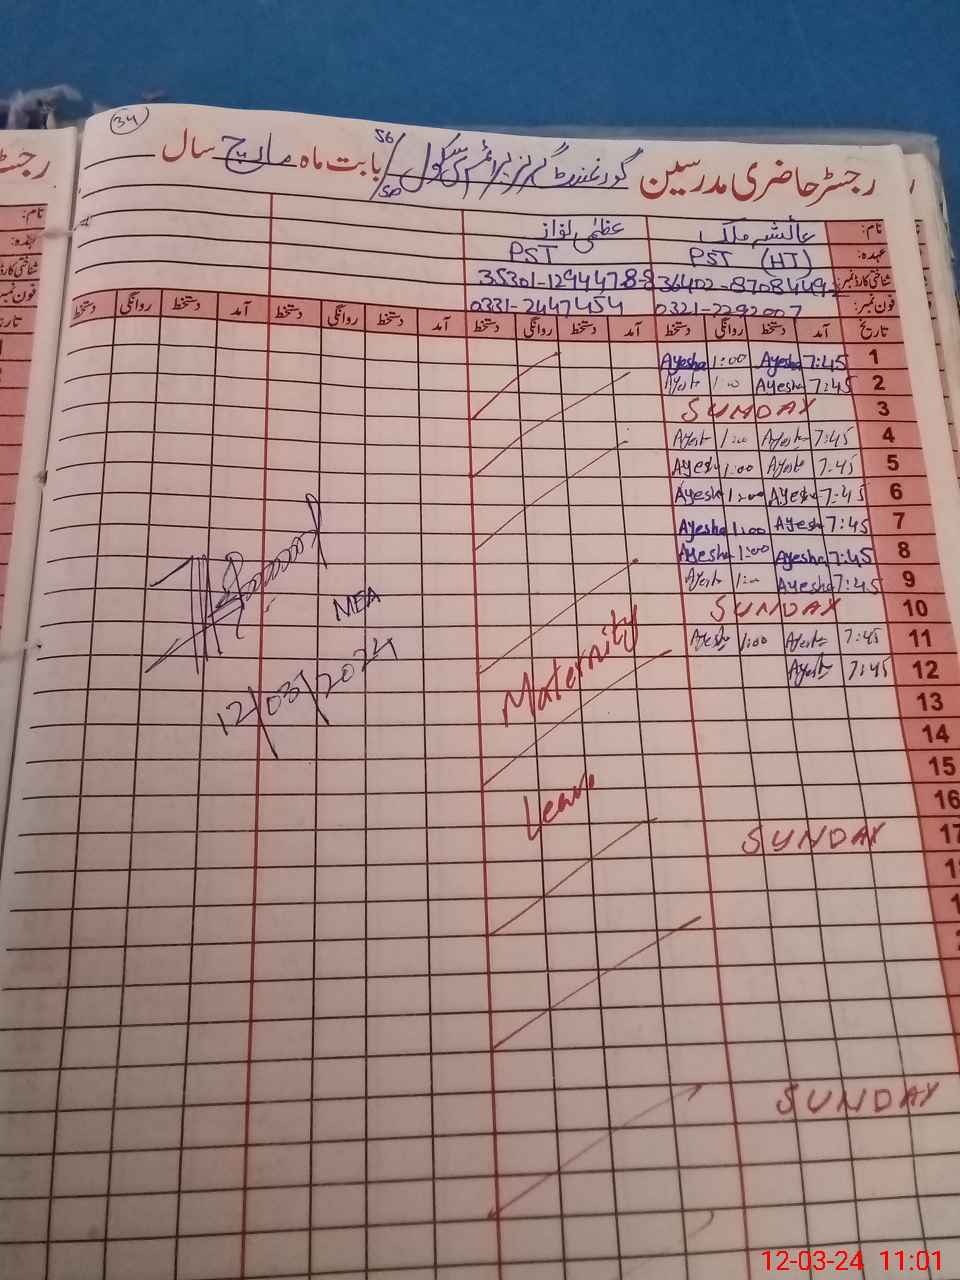 34
رجسٹر حاضری مدرسین گورنمنٹ گرلز پرائمری سکول 56/SP بابت ماہ مارچ سال
نام: عائشہ ملک عظمیٰ نواز
عہدہ: PST (HT) PST
شناختی کارڈ نمبر: 35301-1294478-8
فون نمبر: 0321-2292007 0331-2447454
تاریخ آمد دستخط روانگی دستخط آمد دستخط روانگی دستخط آمد دستخط روانگی دستخط آمد دستخط روانگی دستخط
1 7:45 Ayesha 1:00 Ayesha
2 7:45 Ayesha 1:00 Ayesha
3 SUNDAY
4 7:45 Ayesha 1:00 Ayesha
5 7:45 Ayesha 1:00 Ayesha
6 7:45 Ayesha 1:00 Ayesha
7 7:45 Ayesha 1:00 Ayesha
8 7:45 Ayesha 1:00 Ayesha
9 7:45 Ayesha 1:00 Ayesha
10 SUNDAY
11 7:45 Ayesha 1:00 Ayesha
12 7:45 Ayesha
13
14
15
16
17 SUNDAY
SUNDAY
Maternity
Leave
MEA
12/03/2024
12-03-24 11:01